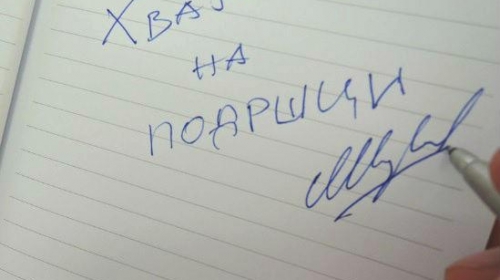 ХВАЛ
НА
ПОДРШЦИ